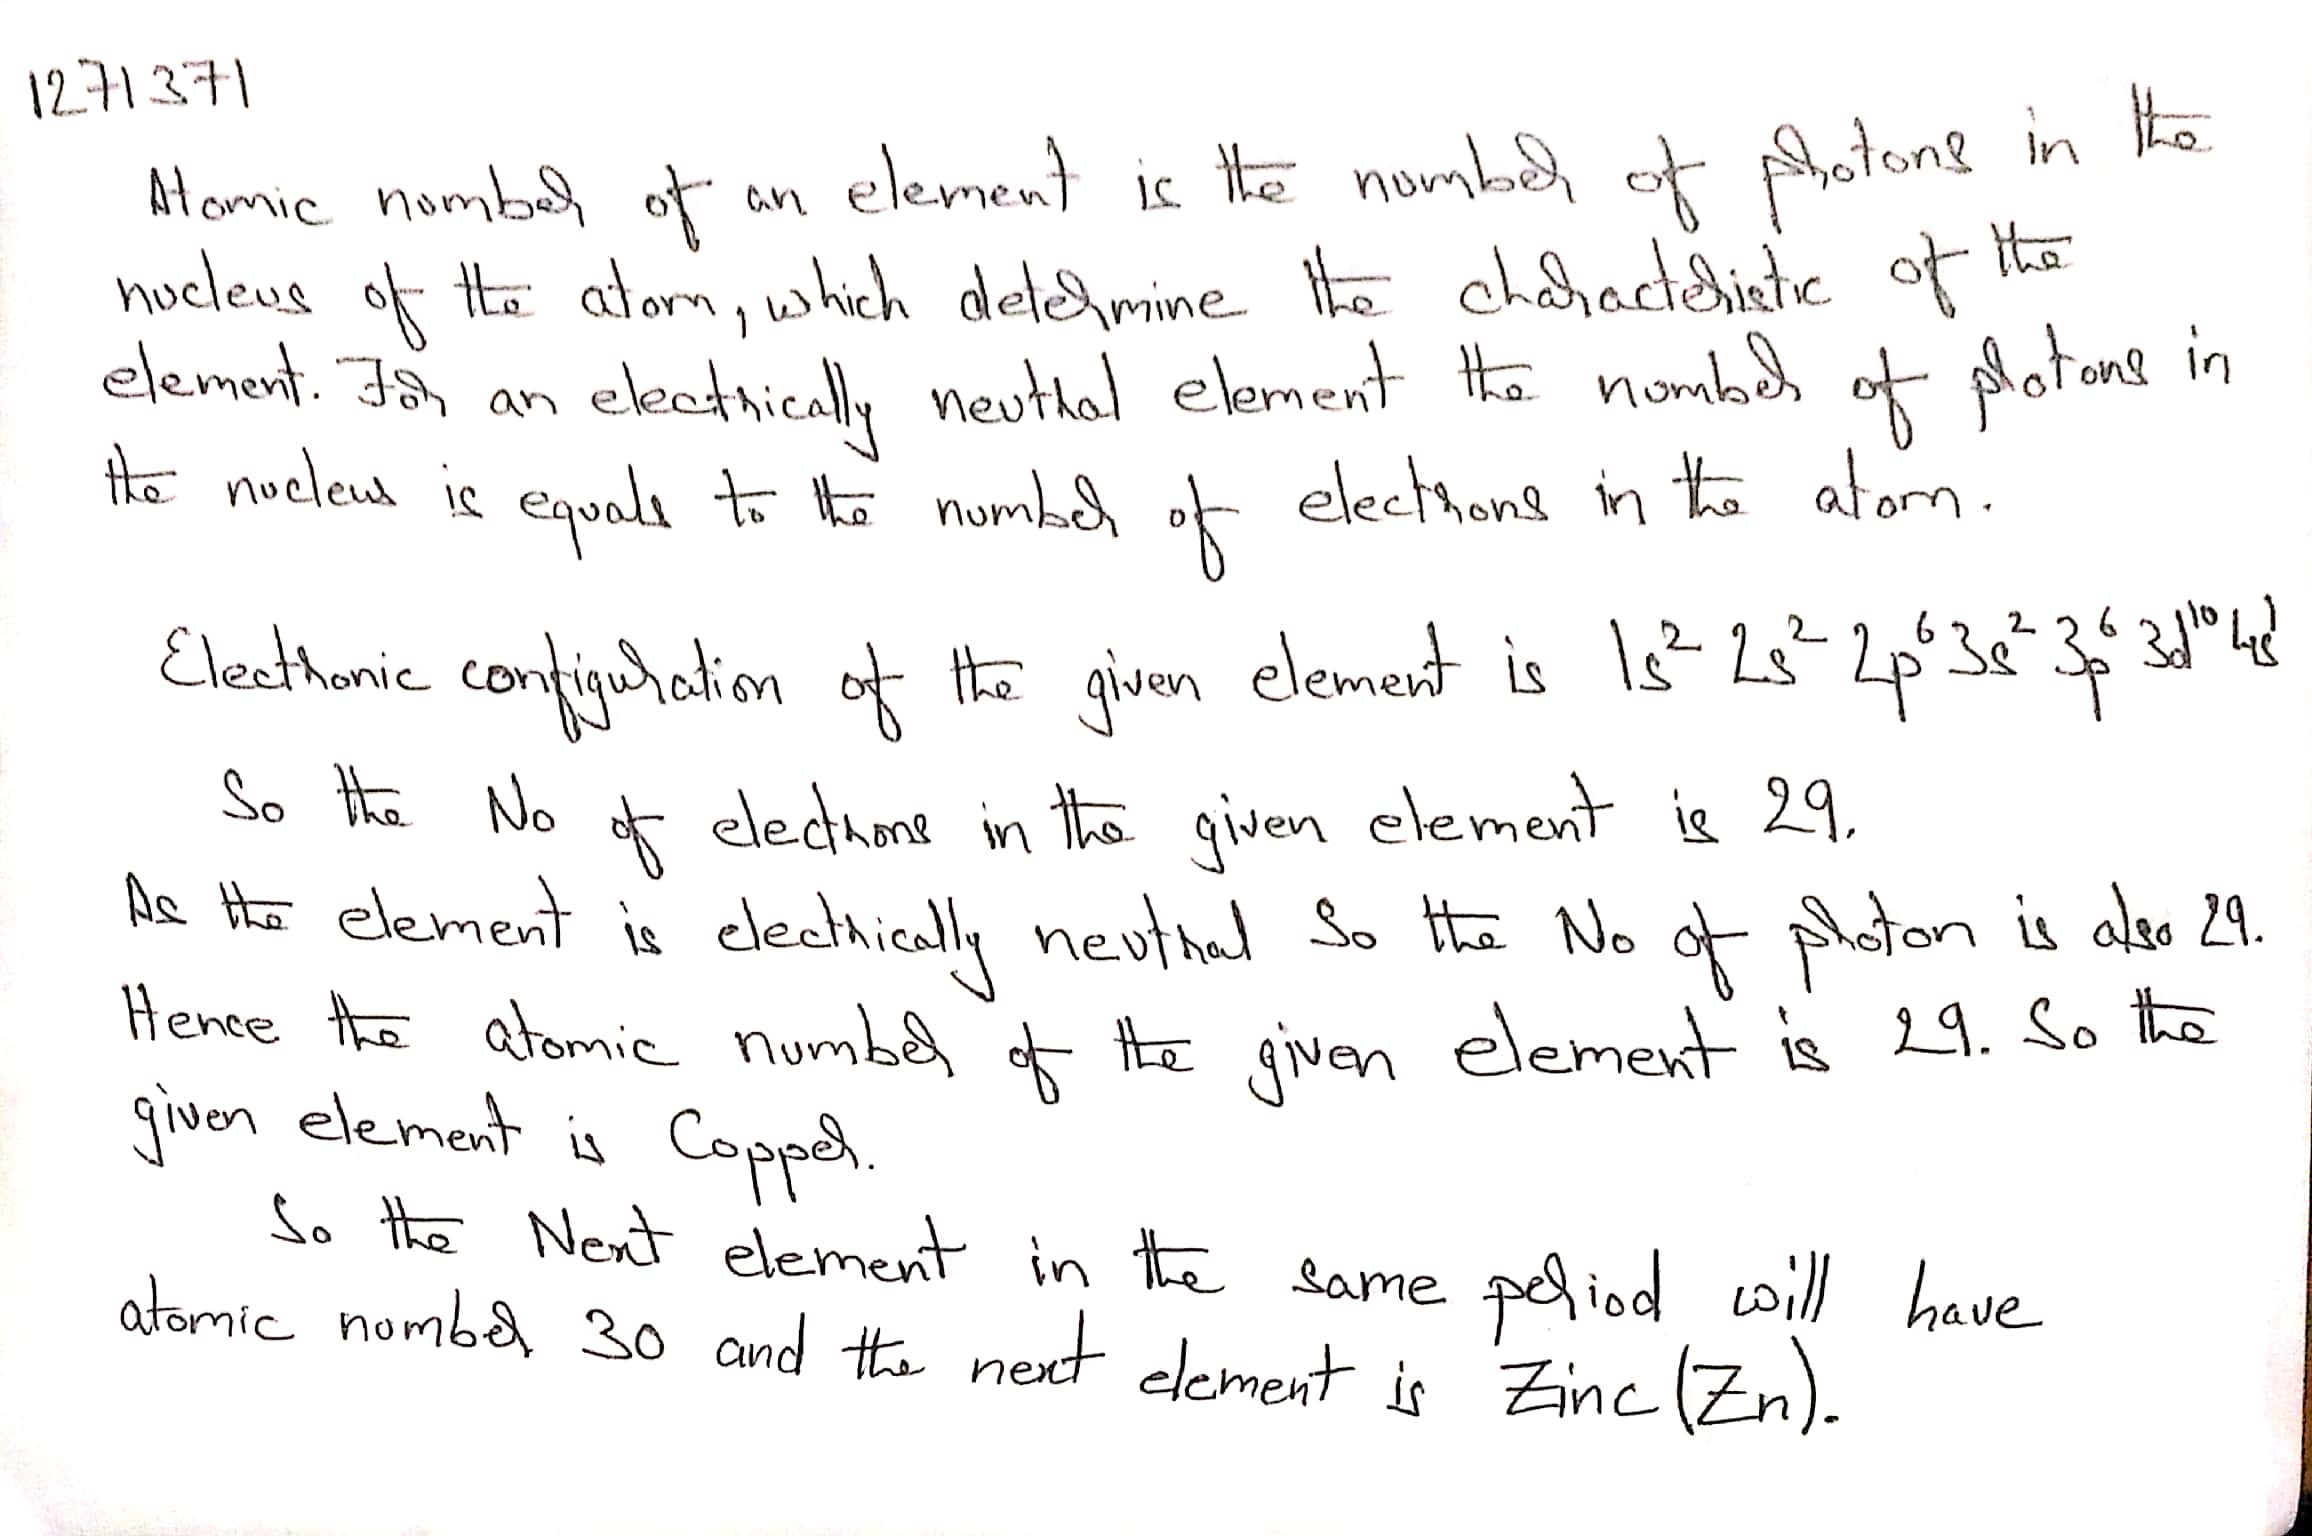 1271371
Atomic number of an element is the number of protons in the
nucleus of the atom, which determine the characteristic of the
element. For an electrically neutral element the number of protons in
the nucleus is equals to the number of electrons in the atom.
Electronic configuration of the given element is 1s² 2s² 2p⁶ 3s² 3p⁶ 3d¹⁰ 4s¹
So the No of electrons in the given element is 29.
As the element is electrically neutral So the No of proton is also 29.
Hence the atomic number of the given element is 29. So the
given element is Copper.
So the Next element in the same period will have
atomic number 30 and the next element is Zinc (Zn).